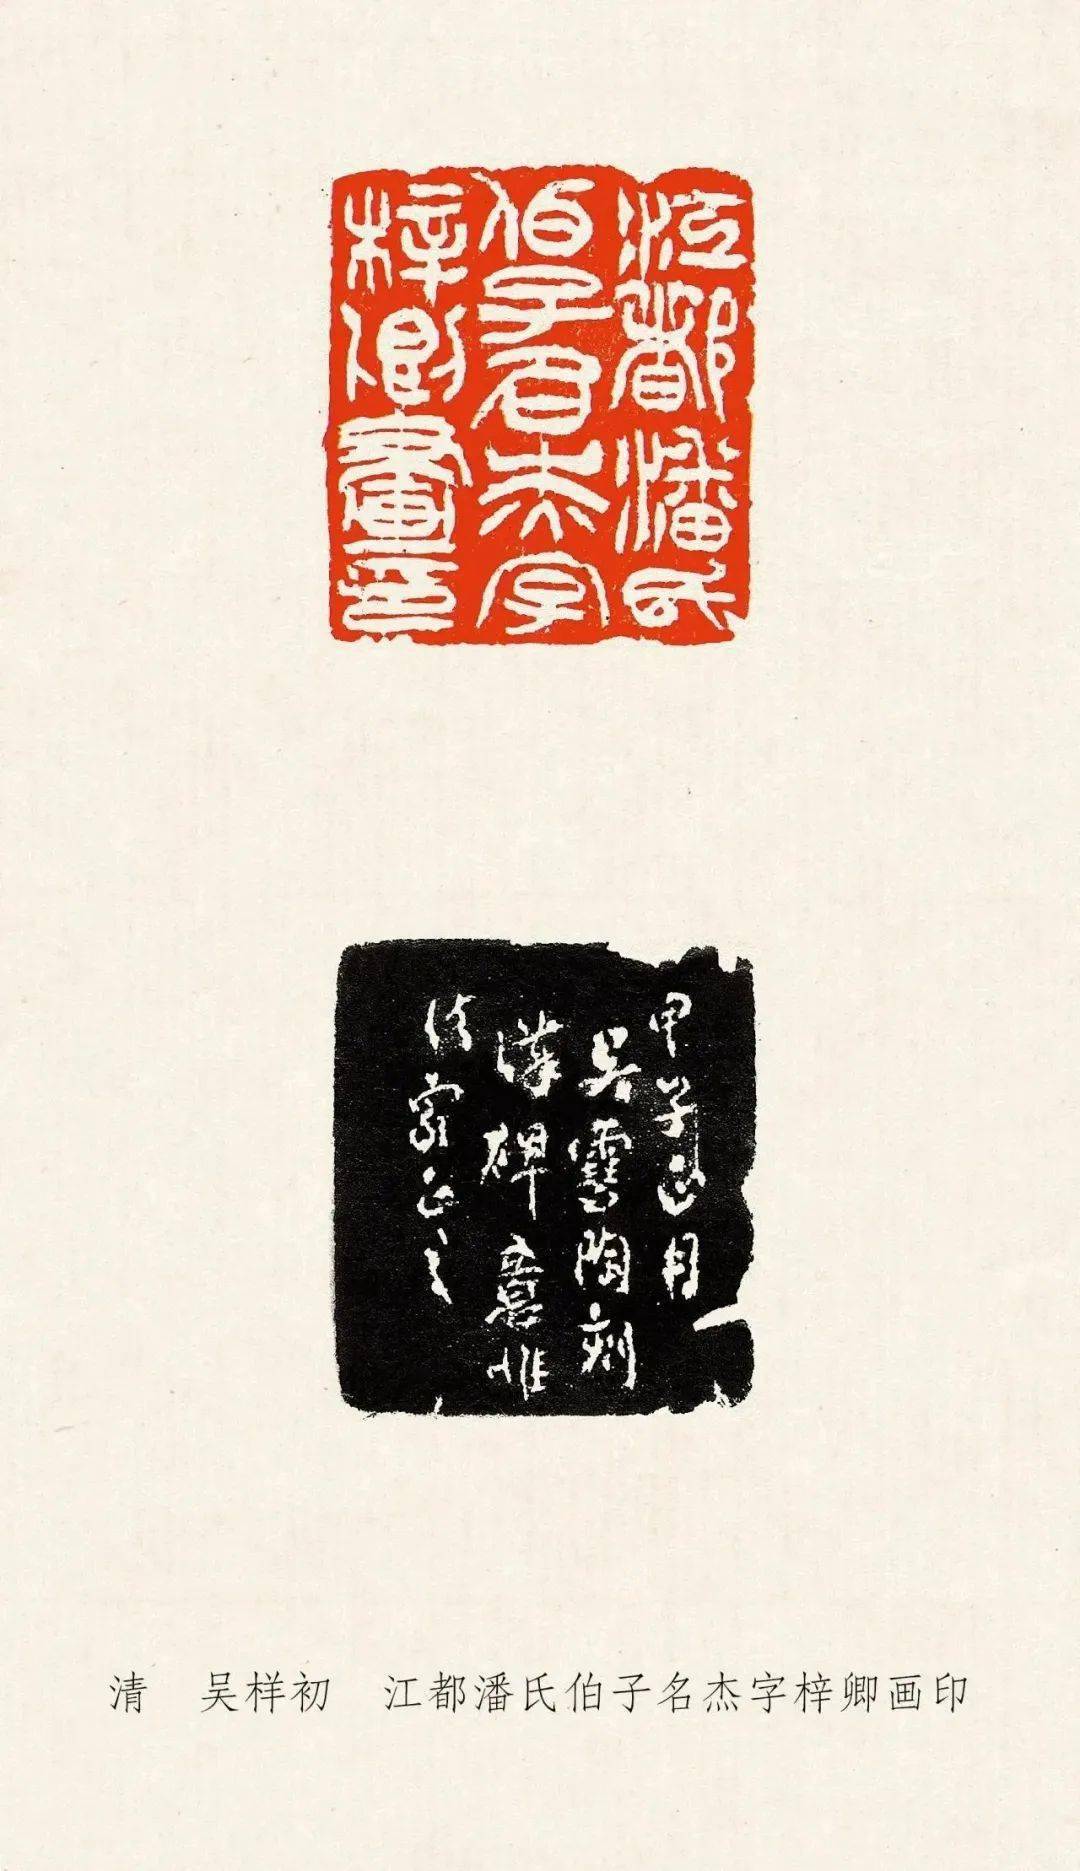 江都潘氏
伯子名杰字
梓卿畫印
甲子正月
吴陶刻
漢碑意惟
法家正之
清 吴样初 江都潘氏伯子名杰字梓卿画印